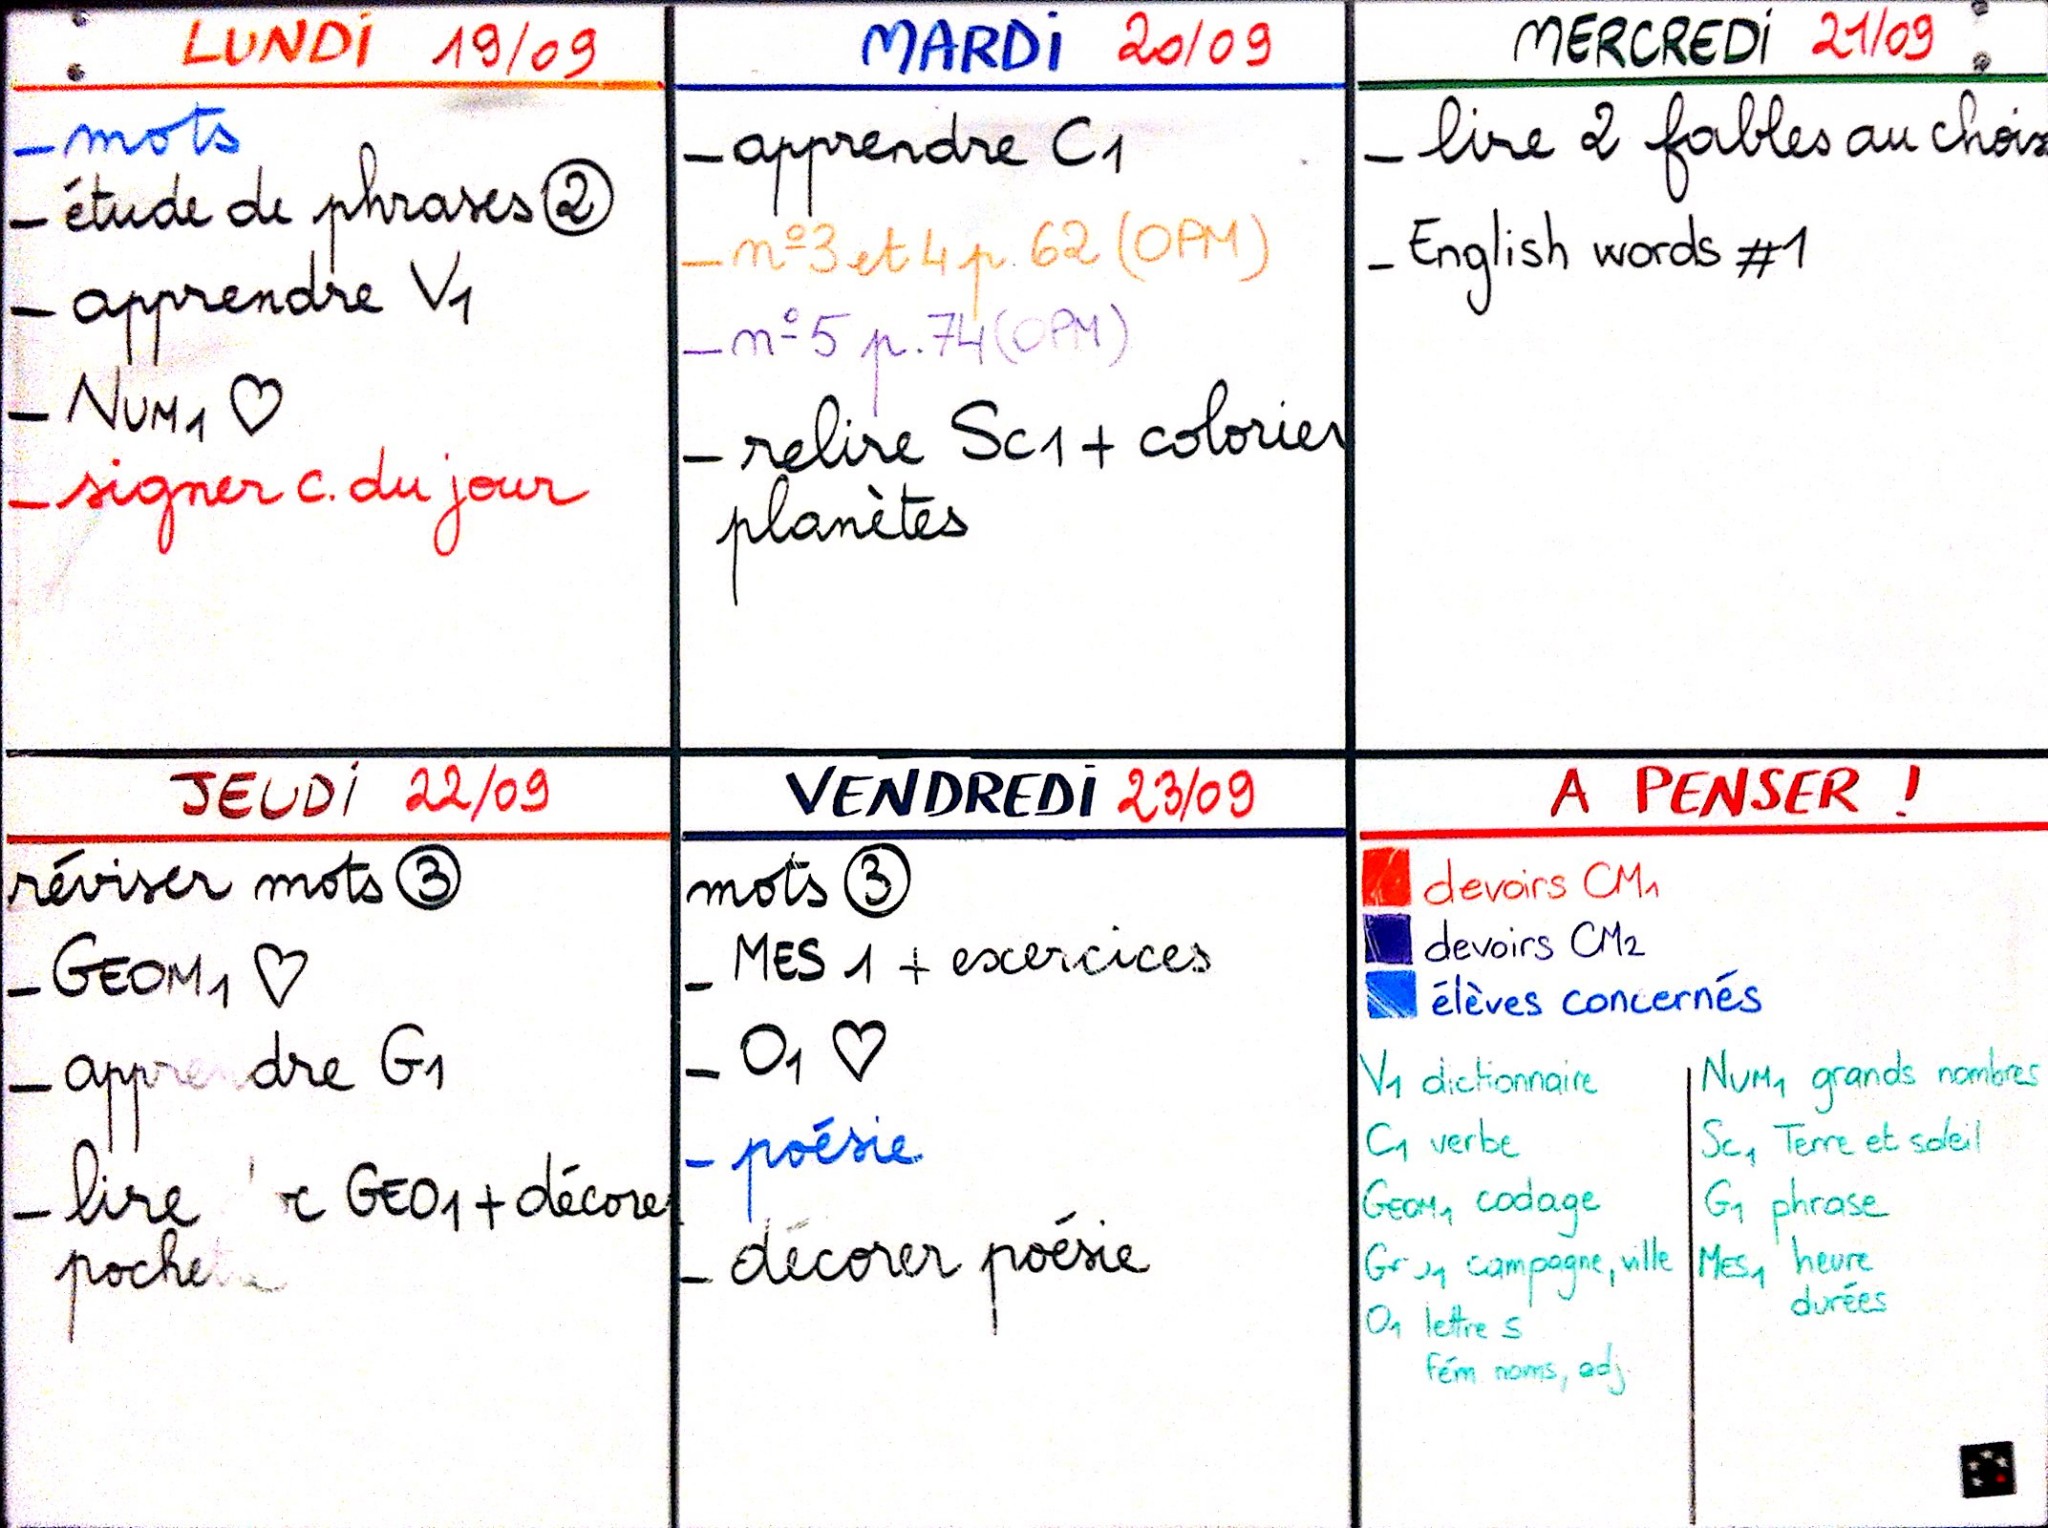 LUNDi 19/09
- mots
- étude de phrases ②
- apprendre V1
- NUM1 ♡
- signer c. du jour
MARDi 20/09
- apprendre C1
- nº3 et 4 p. 62 (OPM)
- nº5 p. 74 (OPM)
- relire Sc1 + colorier
planètes
MERCREDi 21/09
- lire 2 fables au choix
- English words #1
JEUDi 22/09
réviser mots ③
- GEOM1 ♡
- apprendre G1
- lire GEO1 + décorer
VENDREDi 23/09
mots ③
- MES 1 + exercices
- O1 ♡
- poésie
- décorer poésie
A PENSER !
devoirs CM1
devoirs CM2
élèves concernés
V1 dictionnaire
C1 verbe
GEOM1 codage
campagne, ville
O1 lettre s
fém. noms, adj.
NUM1 grands nombres
Sc1 Terre et soleil
G1 phrase
MES1 heure
durées